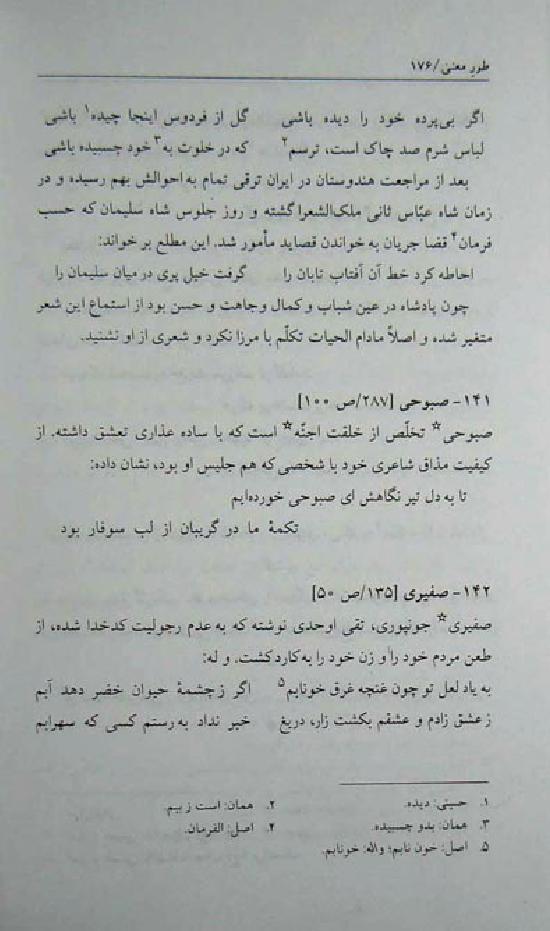 طور معنی/۱۷۶
اگر بی‌پرده خود را دیده باشی گل از فردوس اینجا چیده۱ باشی
لباس شرم صد چاک است، ترسم۲ که در خلوت به۳ خود چسبیده باشی
بعد از مراجعت هندوستان در ایران ترقی تمام به احوالش بهم رسیده و در
زمان شاه عبّاس ثانی ملک‌الشعرا گشته و روز جلوس شاه سلیمان که حسب
فرمان۴ قضا جریان به خواندن قصاید مأمور شد. این مطلع بر خواند:
احاطه کرد خط آن آفتاب تابان را گرفت خیل پری در میان سلیمان را
چون پادشاه در عین شباب و کمال وجاهت و حسن بود از استماع این شعر
متغیر شده و اصلاً مادام الحیات تکلّم با مرزا نکرد و شعری از او نشنید.
۱۴۱- صبوحی [۲۸۷/ص ۱۰۰]
صبوحی* تخلّص از خلقت اجنّه* است که با ساده عذاری تعشق داشته. از
کیفیت مذاق شاعری خود با شخصی که هم جلیس او بود، نشان داده:
تا به دل تیر نگاهش ای صبوحی خورده‌ایم
تکمهٔ ما در گریبان از لب سوفار بود
۱۴۲- صفیری [۱۳۵/ص ۵۰]
صفیری* جونپوری، تقی اوحدی نوشته که به عدم رجولیت کدخدا شده، از
طعن مردم خود را و زن خود را به کارد کشت. و له:
به یاد لعل تو چون غنچه غرق خونابم۵ اگر ز چشمهٔ حیوان خضر دهد آبم
ز عشق زادم و عشقم بکشت زار، دریغ خبر نداد به رستم کسی که سهرابم
۱. حسینی: دیده. ۲. همان: است ز بیم.
۳. همان: بدو چسبیده. ۴. اصل: الفرمان.
۵. اصل: خون نابم؛ واله: خونابم.